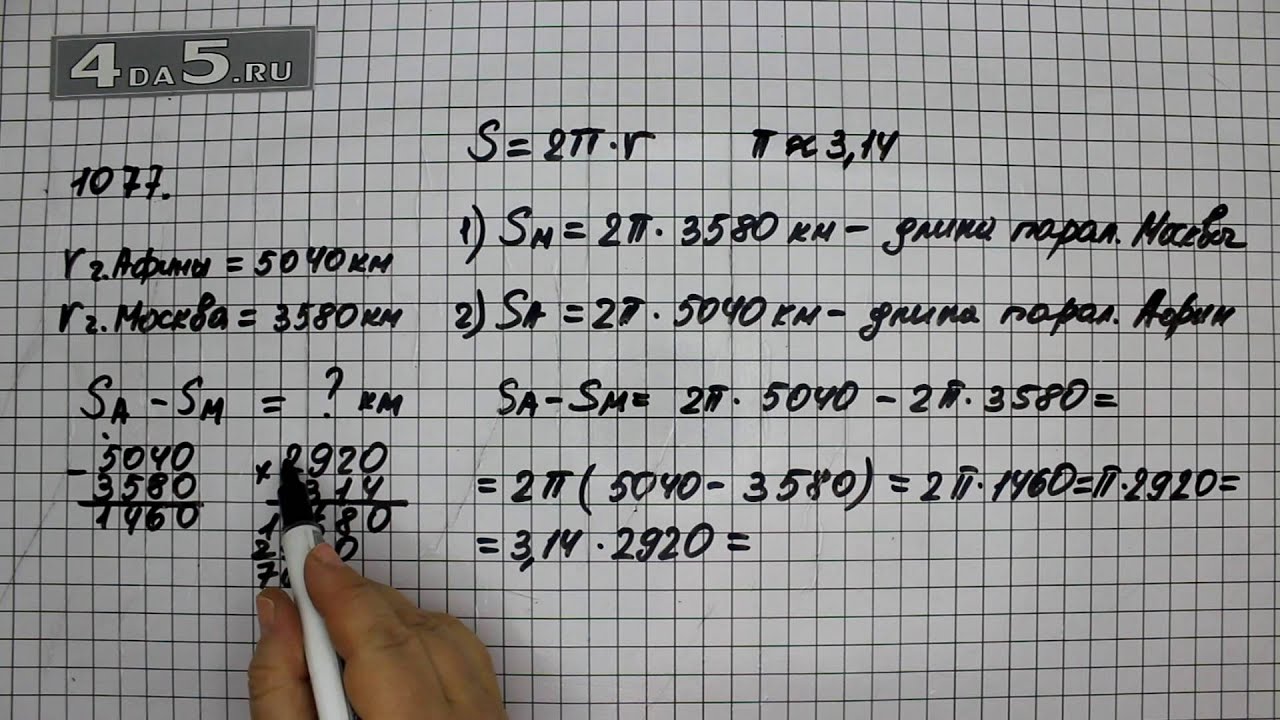 4DA5.RU
S = 2π·r π ≈ 3,14
1077.
r г.Афины = 5040 км
r г.Москва = 3580 км
SА – SМ = ? км
5040
–
3580
1460
2920
×
314
80
0
7
1) SМ = 2π · 3580 км – длина парал. Москвы
2) SА = 2π · 5040 км – длина парал. Афин
SА – SМ = 2π · 5040 – 2π · 3580 =
= 2π ( 5040 – 3580) = 2π · 1460 = π · 2920 =
= 3,14 · 2920 =